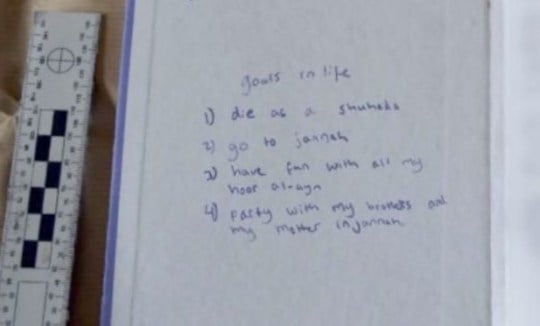 goals in life
1) die as a shuhada
2) go to jannah
3) have fun with all my
hoor al-ayn
4) Party with my brothers and
my mother in jannah